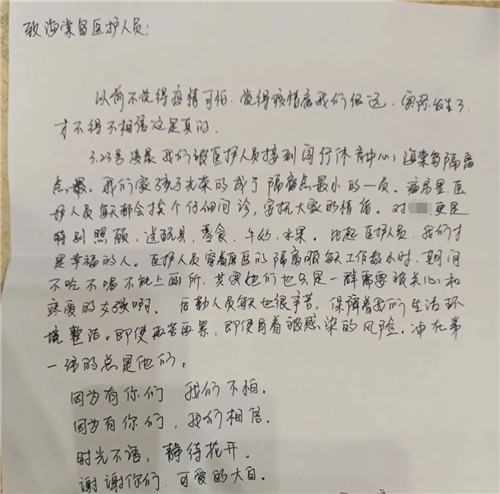 致海棠岛医护人员：
以前不觉得疫情可怕，觉得疫情离我们很远，实际发生了
才不得不相信这是真的。
3.23号凌晨我们被医护人员接到闵行体育中心，海棠岛隔离
点。我们家孩子光荣的成了隔离点最小的一员。病房里医
护人员每天都会挨个仔细问诊，安抚大家的情绪。对 更是
特别照顾，送玩具、零食、牛奶、水果。比起医护人员，我们才
是幸福的人。医护人员穿着厚厚的隔离服每天工作数小时，期间
不吃不喝不能上厕所，其实他们也只是一群需要被关心和
疼爱的女孩啊。后勤人员每天也很辛苦，保障着我们生活环
境整洁。即使再苦再累，即使冒着被感染的风险。冲在第
一线的总是他们。
因为有你们，我们不怕。
因为有你们，我们相信。
时光不语，静待花开。
谢谢你们，可爱的大白。